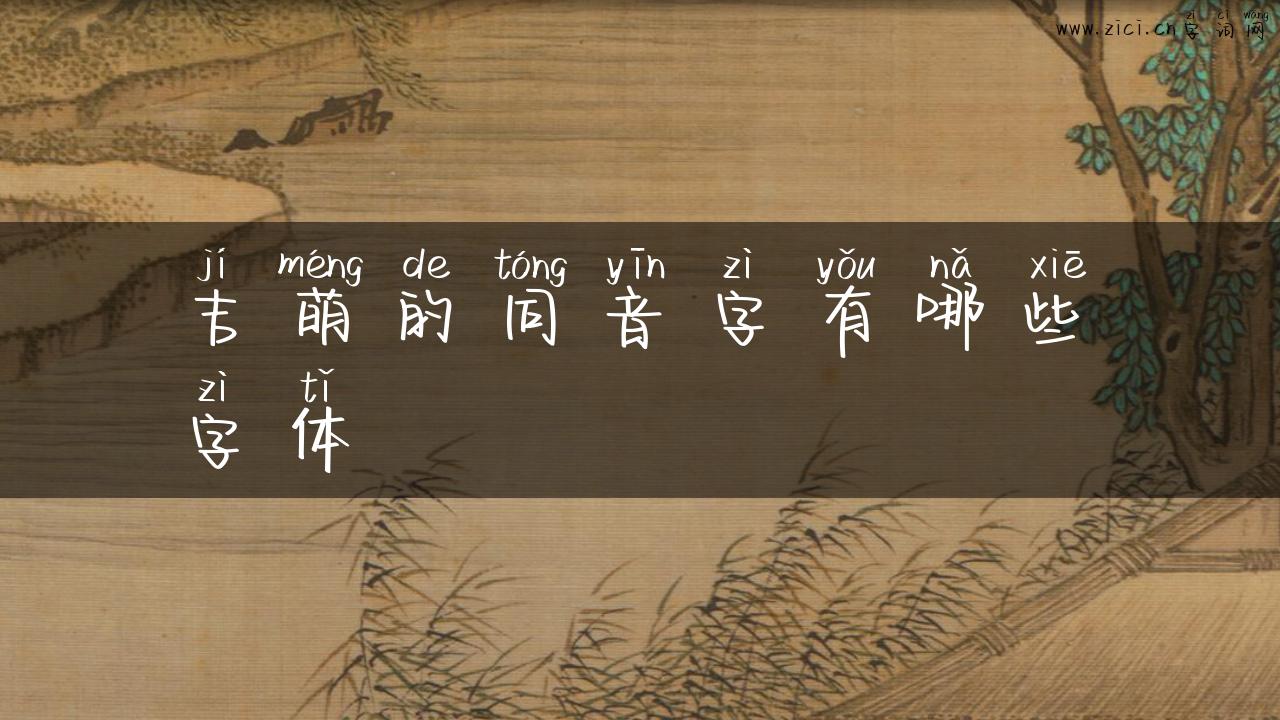 www.zici.cn
zì cí wǎng
字词网
jí méng de tóng yīn zì yǒu nǎ xiē
萌的同音字有哪些
zì tǐ
字体